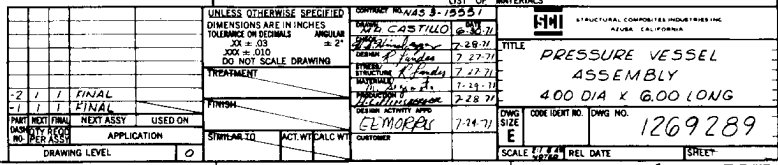 LIST OF MATERIALS
UNLESS OTHERWISE SPECIFIED
DIMENSIONS ARE IN INCHES
TOLERANCE ON DECIMALS ANGULAR
.XX ± .03 ± 2°
.XXX ± .010
DO NOT SCALE DRAWING
TREATMENT
FINISH
SIMILAR TO ACT. WT CALC WT
CONTRACT NO. NAS 3-
DRAWN DATE
MD CASTILLO 6-30-71
CHECK
7-28-71
DESIGN
7 27-71
STRESS/
STRUCTURE
7-27-71
MATERIALS
7-29-71
PRODUCTION
7 28 71
DESIGN ACTIVITY APPD
7-29-71
CUSTOMER
SCI
STRUCTURAL COMPOSITES INDUSTRIES INC
AZUSA CALIFORNIA
TITLE
PRESSURE VESSEL
ASSEMBLY
4.00 DIA X 6.00 LONG
DWG SIZE
E
CODE IDENT NO.
DWG NO.
1269289
SCALE
REL DATE
SHEET
-2 1 1 FINAL
-1 1 1 FINAL
PART NEXT FINAL NEXT ASSY USED ON
DASH NO. QTY REQD PER ASSY APPLICATION
DRAWING LEVEL 0